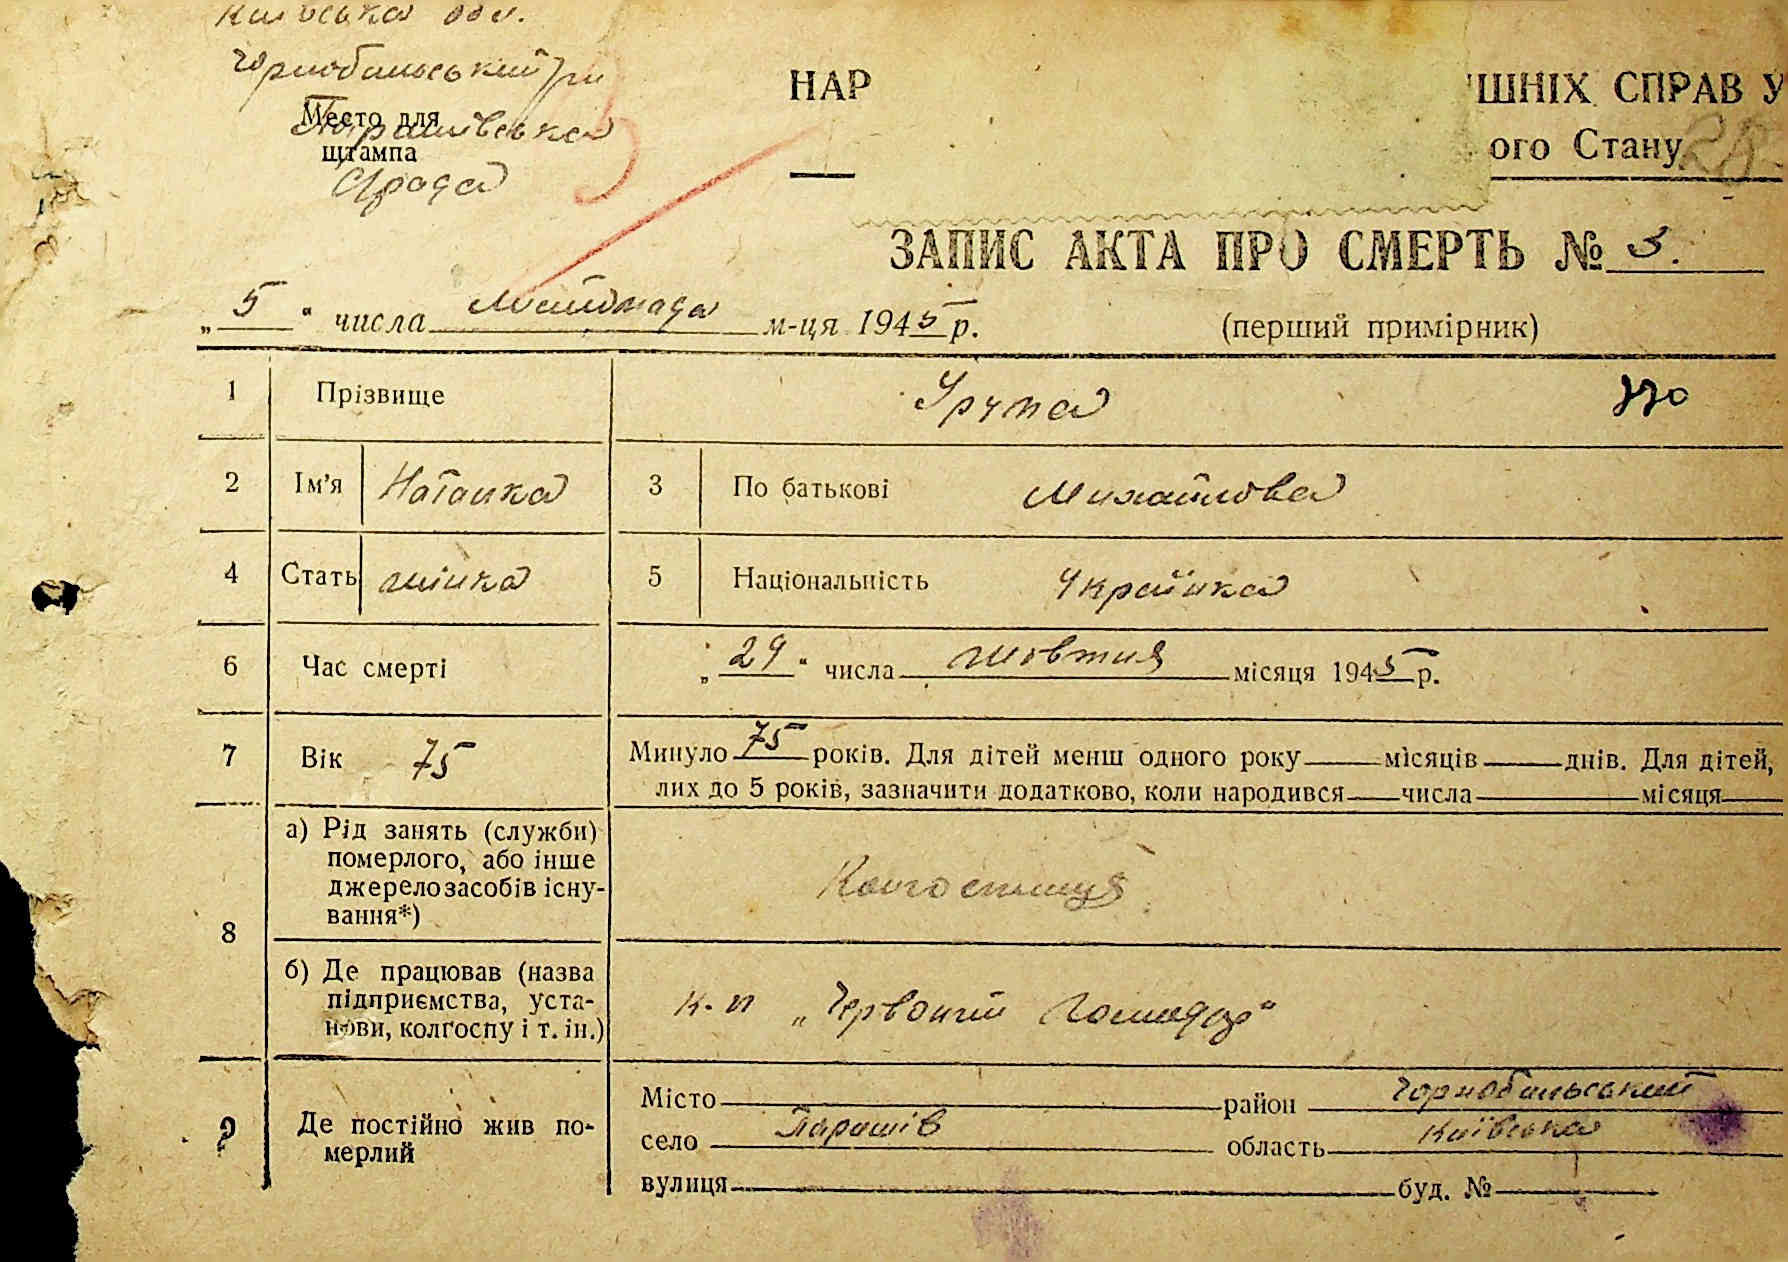 Київська обл.
Чорнобильський р-н
Место для
штампа
Парашівська
с/рада
НАР ШНІХ СПРАВ У
ого Стану 28
ЗАПИС АКТА ПРО СМЕРТЬ № 3.
„5“ числа листопада м-ця 1945 р. (перший примірник)
1 Прізвище
2 Ім'я Наталка 3 По батькові Михайлова
4 Стать жінка 5 Національність Українка
6 Час смерті „29“ числа жовтня місяця 1945 р.
7 Вік 75 Минуло 75 років. Для дітей менш одного року місяців днів. Для дітей,
лих до 5 років, зазначити додатково, коли народився числа місяця
8 а) Рід занять (служби)
померлого, або інше
джерело засобів існу-
вання*) Колгоспниця
б) Де працював (назва
підприємства, уста-
нови, колгоспу і т. ін.) к-п „Червоний Господар“
9 Де постійно жив по-
мерлий
Місто район Чорнобильський
село Парашів область Київська
вулиця буд. №